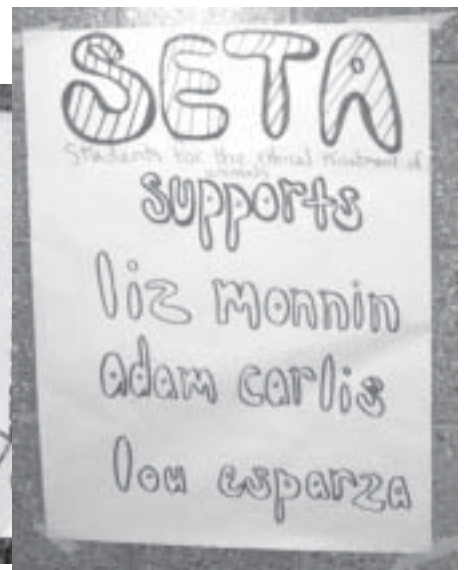 SETA
Students for the Ethical Treatment of
animals
supports
liz monnin
adam carlis
lou esparza